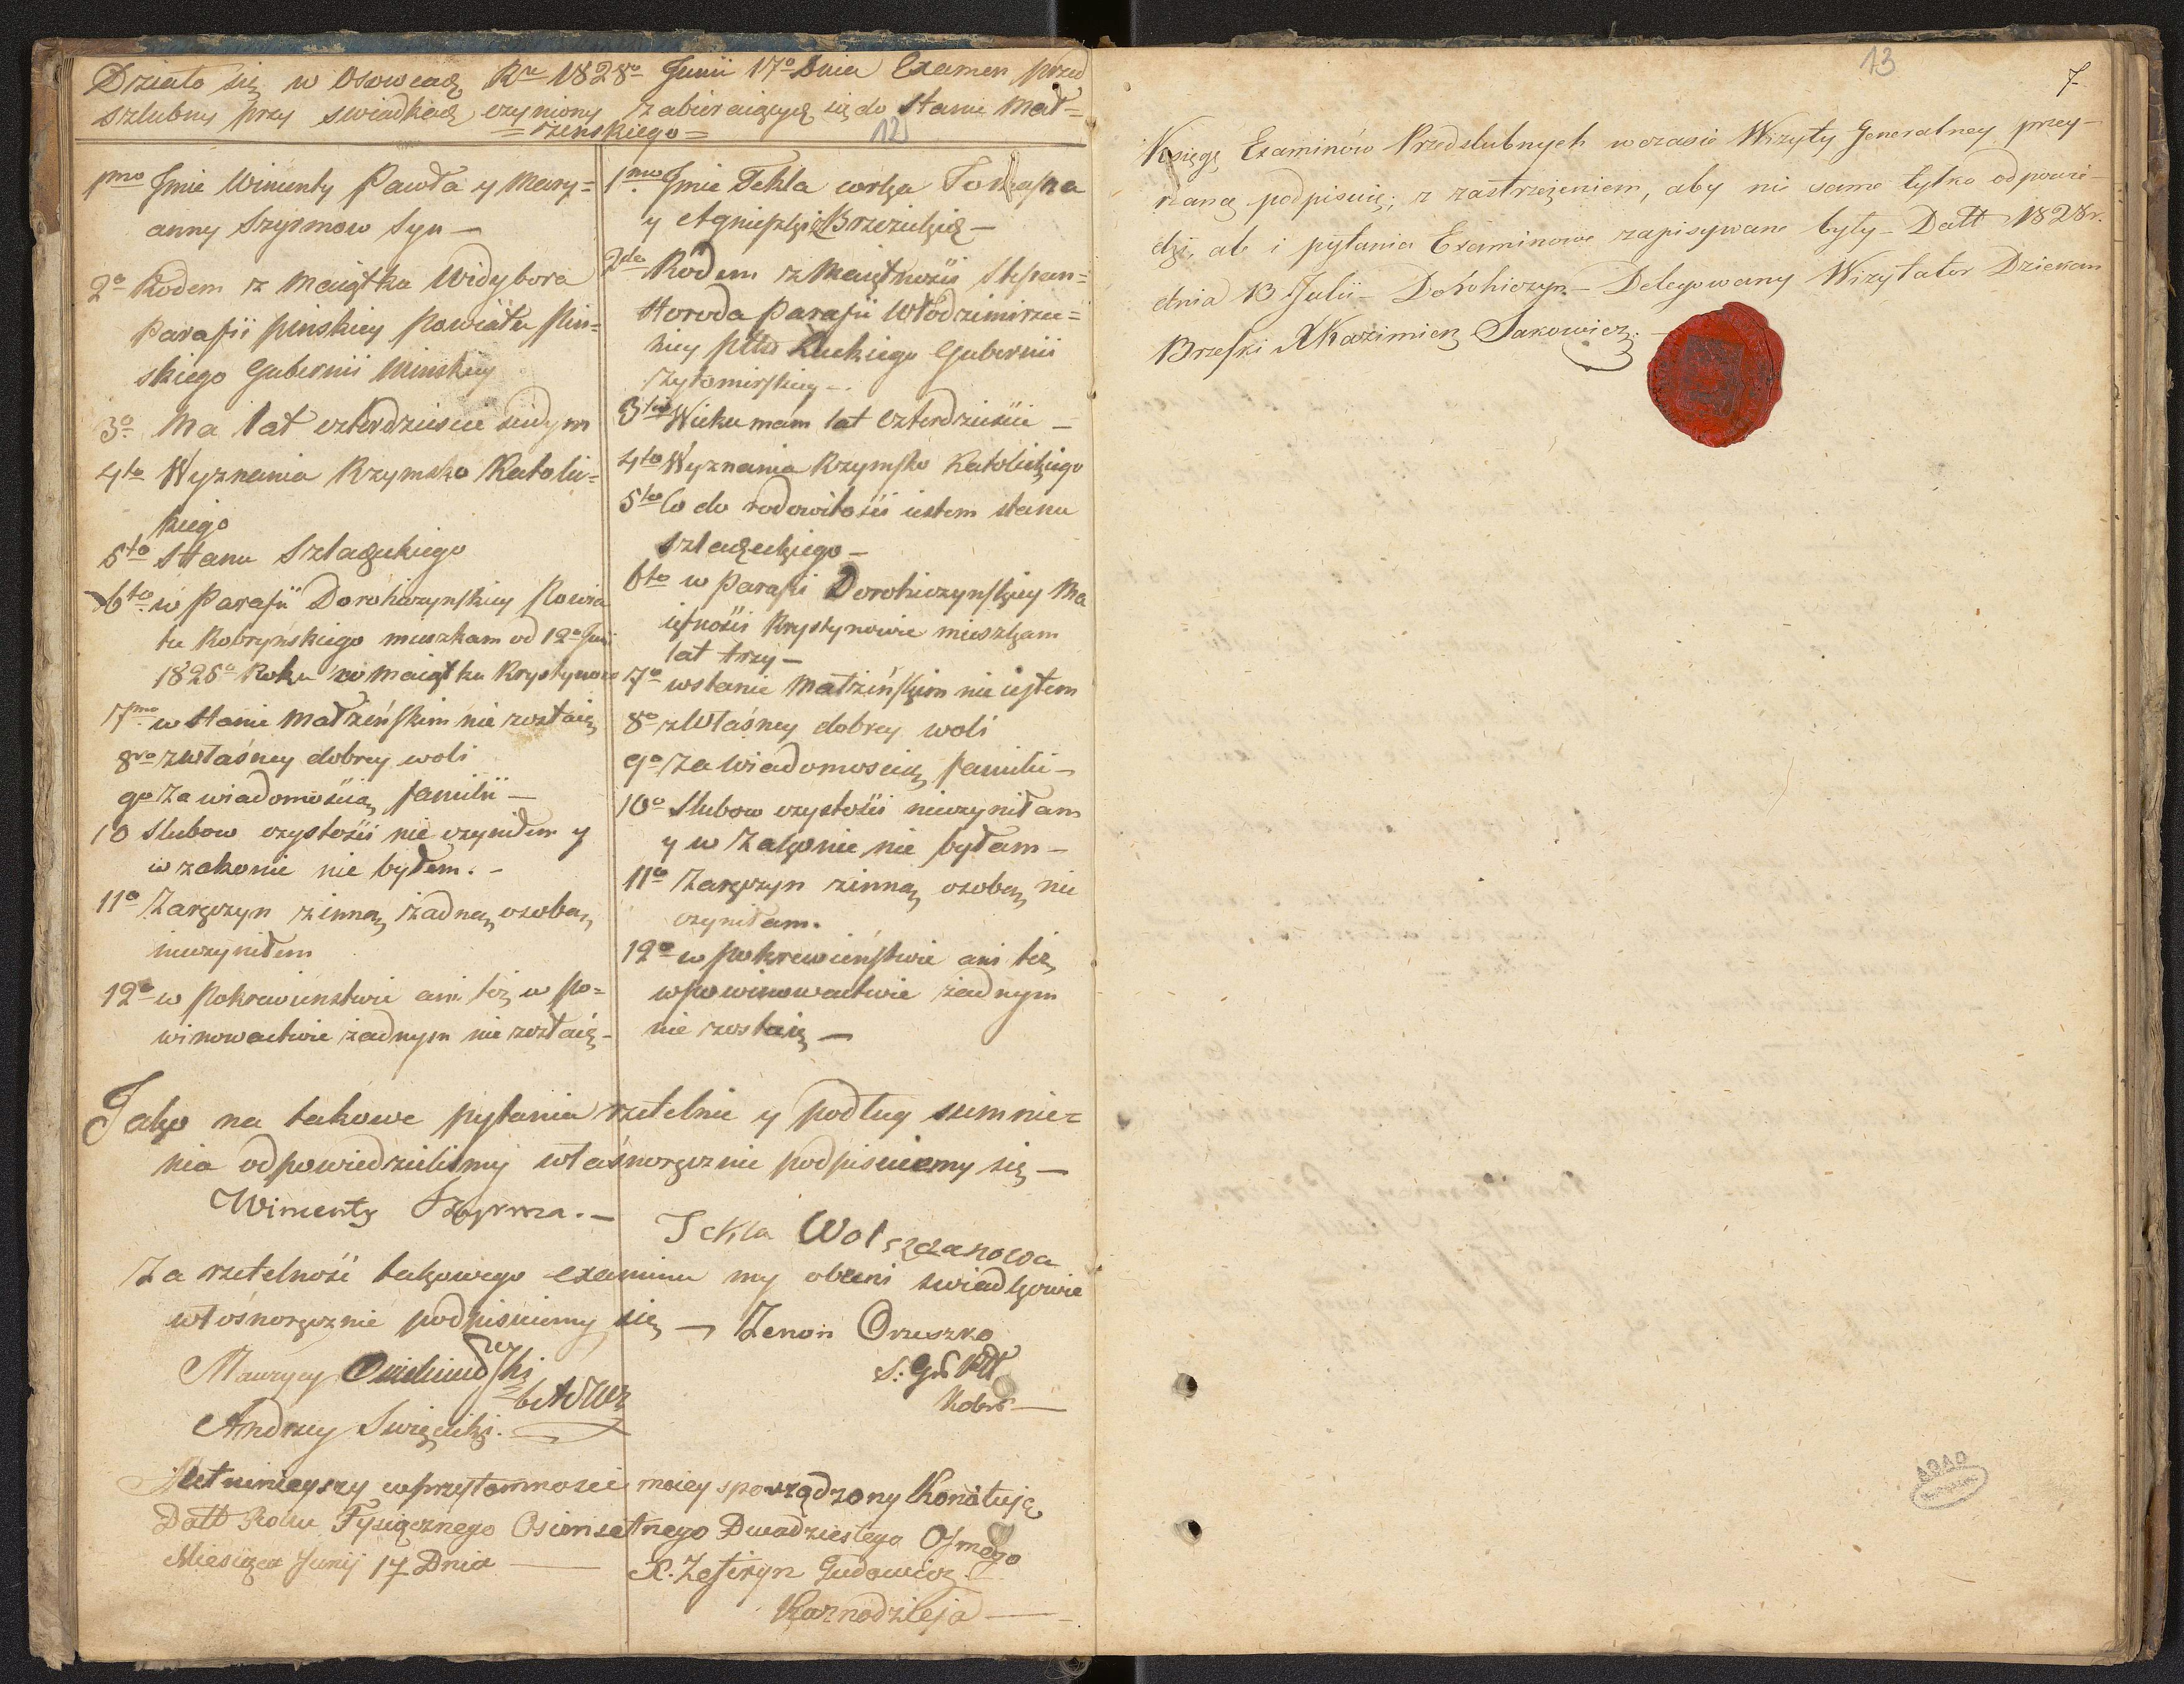 Działo się w Osowcach Ru 1828o Junii 17o Dnia Examen przed
szlubny przy swiadkach czyniony zabieraiących się do stanu Mał=
=rzenskiego=
12
1mo Jmie Wincenty Pawła y Mary=
anny Szyrmow Syn —
2o Rodem z Maiątku Widybora
Parafii pinskiey Powiatu Pin=
skiego Gubernii Minskiey
3o Ma lat czterdziescie siedym
4to Wyznania Rzymsko Katolic=
kiego
5to Stanu Szlacheckiego
6to w Parafii Dorohiczynskiey Powia
tu Kobryńskiego mieszkam od 12o Juni
1825o Roku w Maiątku Krystynowo
7mo w stanie Małżeńskim nie zostaię
8vo z własney dobrey woli
9o Za wiadomością familii —
10 Slubow czystości nie czyniłem y
w zakonie nie byłem. –
11o Zaręczyn z inną żadną osobą
nieczyniłem
12o w Pokrewienstwie ani też w po=
winowactwie żadnym nie zostaię –
1mo Jmie Tekla corka
y Agnieszki Brzezickich —
2do Rodem z Maiętności Stepan=
Horoda Parafii Włodzimirzec=
kiey pttu Łuckiego Gubernii
Zytomirskiey —.
3tio Wieku mam lat czterdzieści —
4to Wyznania Rzymsko Katolickiego
5to Co do rodowitości iestem stanu
szlacheckiego —
6to w Parafii Dorohiczynskiey Ma
iętności Krystynowie mieszkam
lat trzy —
7o w stanie Małżeńskim nie iestem
8o z Własney dobrey woli
9o Za wiadomoscią familii —
10o Slubow czystości nieczyniłam
y w Zakonie nie byłam —
11o Zaręczyn z inną osobą nie
czyniłam.
12o w pokrewieństwie ani też
w powinowactwie żadnym
nie zostaię —
Jako na takowe pytania rzetelnie y podług sumnie=
nia odpowiedzielismy własnoręcznie podpisuiemy się —
Wincenty Szyrma. —
Tekla Wolszczanowa
Za rzetelność takowego examinu my obecni swiadkowie
włosnoręcznie podpisuiemy się —
Zenon Orzeszko
S: Gr: Ptt
Kobr —
Maurycy
Andrzey Swięcicki.
Akt ninieyszy w przytomnosci moiey sporządzony Konotuję
Datt Roku Tysiącznego Osimsetnego Dwadziestego Osmego
Miesiąca Junij 17 Dnia —
X. Zefiryn Gudowicz
Kaznodzieja —
13
7
Księgę Examinów Przedslubnych w czasie Wizyty Generalney przey-
rzaną podpisuię; z zastrzeżeniem, aby nie same tylko odpowie-
dzi, ale i pytania Examinowe zapisywane były – Datt 1828 r.
dnia 13 Julii – Dorohiczyn – Delegowany Wizytator Dziekan
Brzeski X Kazimierz Sakowicz. –
AGAD